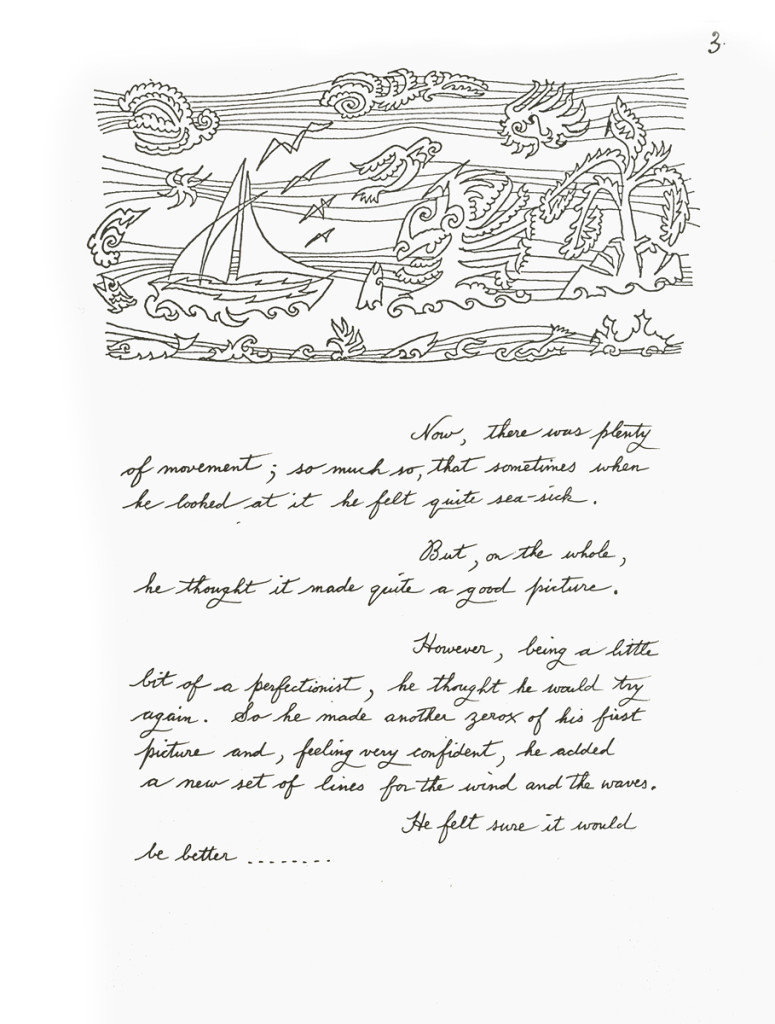 3.
Now, there was plenty
of movement; so much so, that sometimes when
he looked at it he felt quite sea-sick.
But, on the whole,
he thought it made quite a good picture.
However, being a little
bit of a perfectionist, he thought he would try
again. So he made another zerox of his first
picture and, feeling very confident, he added
a new set of lines for the wind and the waves.
He felt sure it would
be better ........